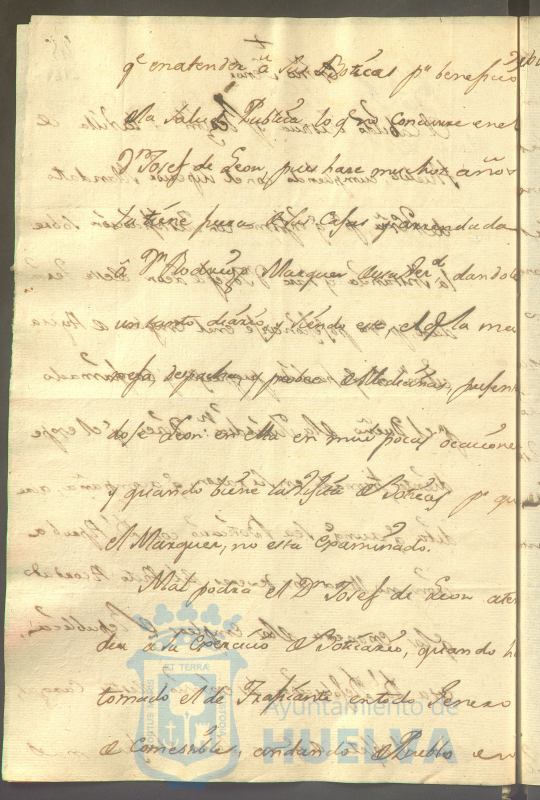 qe. en atender a sus Boticas pr. beneficio
dla Salud Publica, lo q. no concurre en el
Dn. Josef de Leon, pues hace muchos años
la tiene puesta en sus Casas y arrendada
a Dn. Rodrigo Marquez dandole
un tanto diario, siendo este el qe. la ma
neja, despacha, y probee de Medicinas, presen
dose Leon en ella en mui pocas ocaciones
y quando biene la Visita de Boticas pr. que
el Marquez, no esta examinado.
Mal podrá el Dn. Josef de Leon aten
der a su Exercicio de Boticario, quando h
tomado el de Traficante en todo Genero
de Comestibles, andando de Pueblo en
Ayuntamiento de
HUELVA